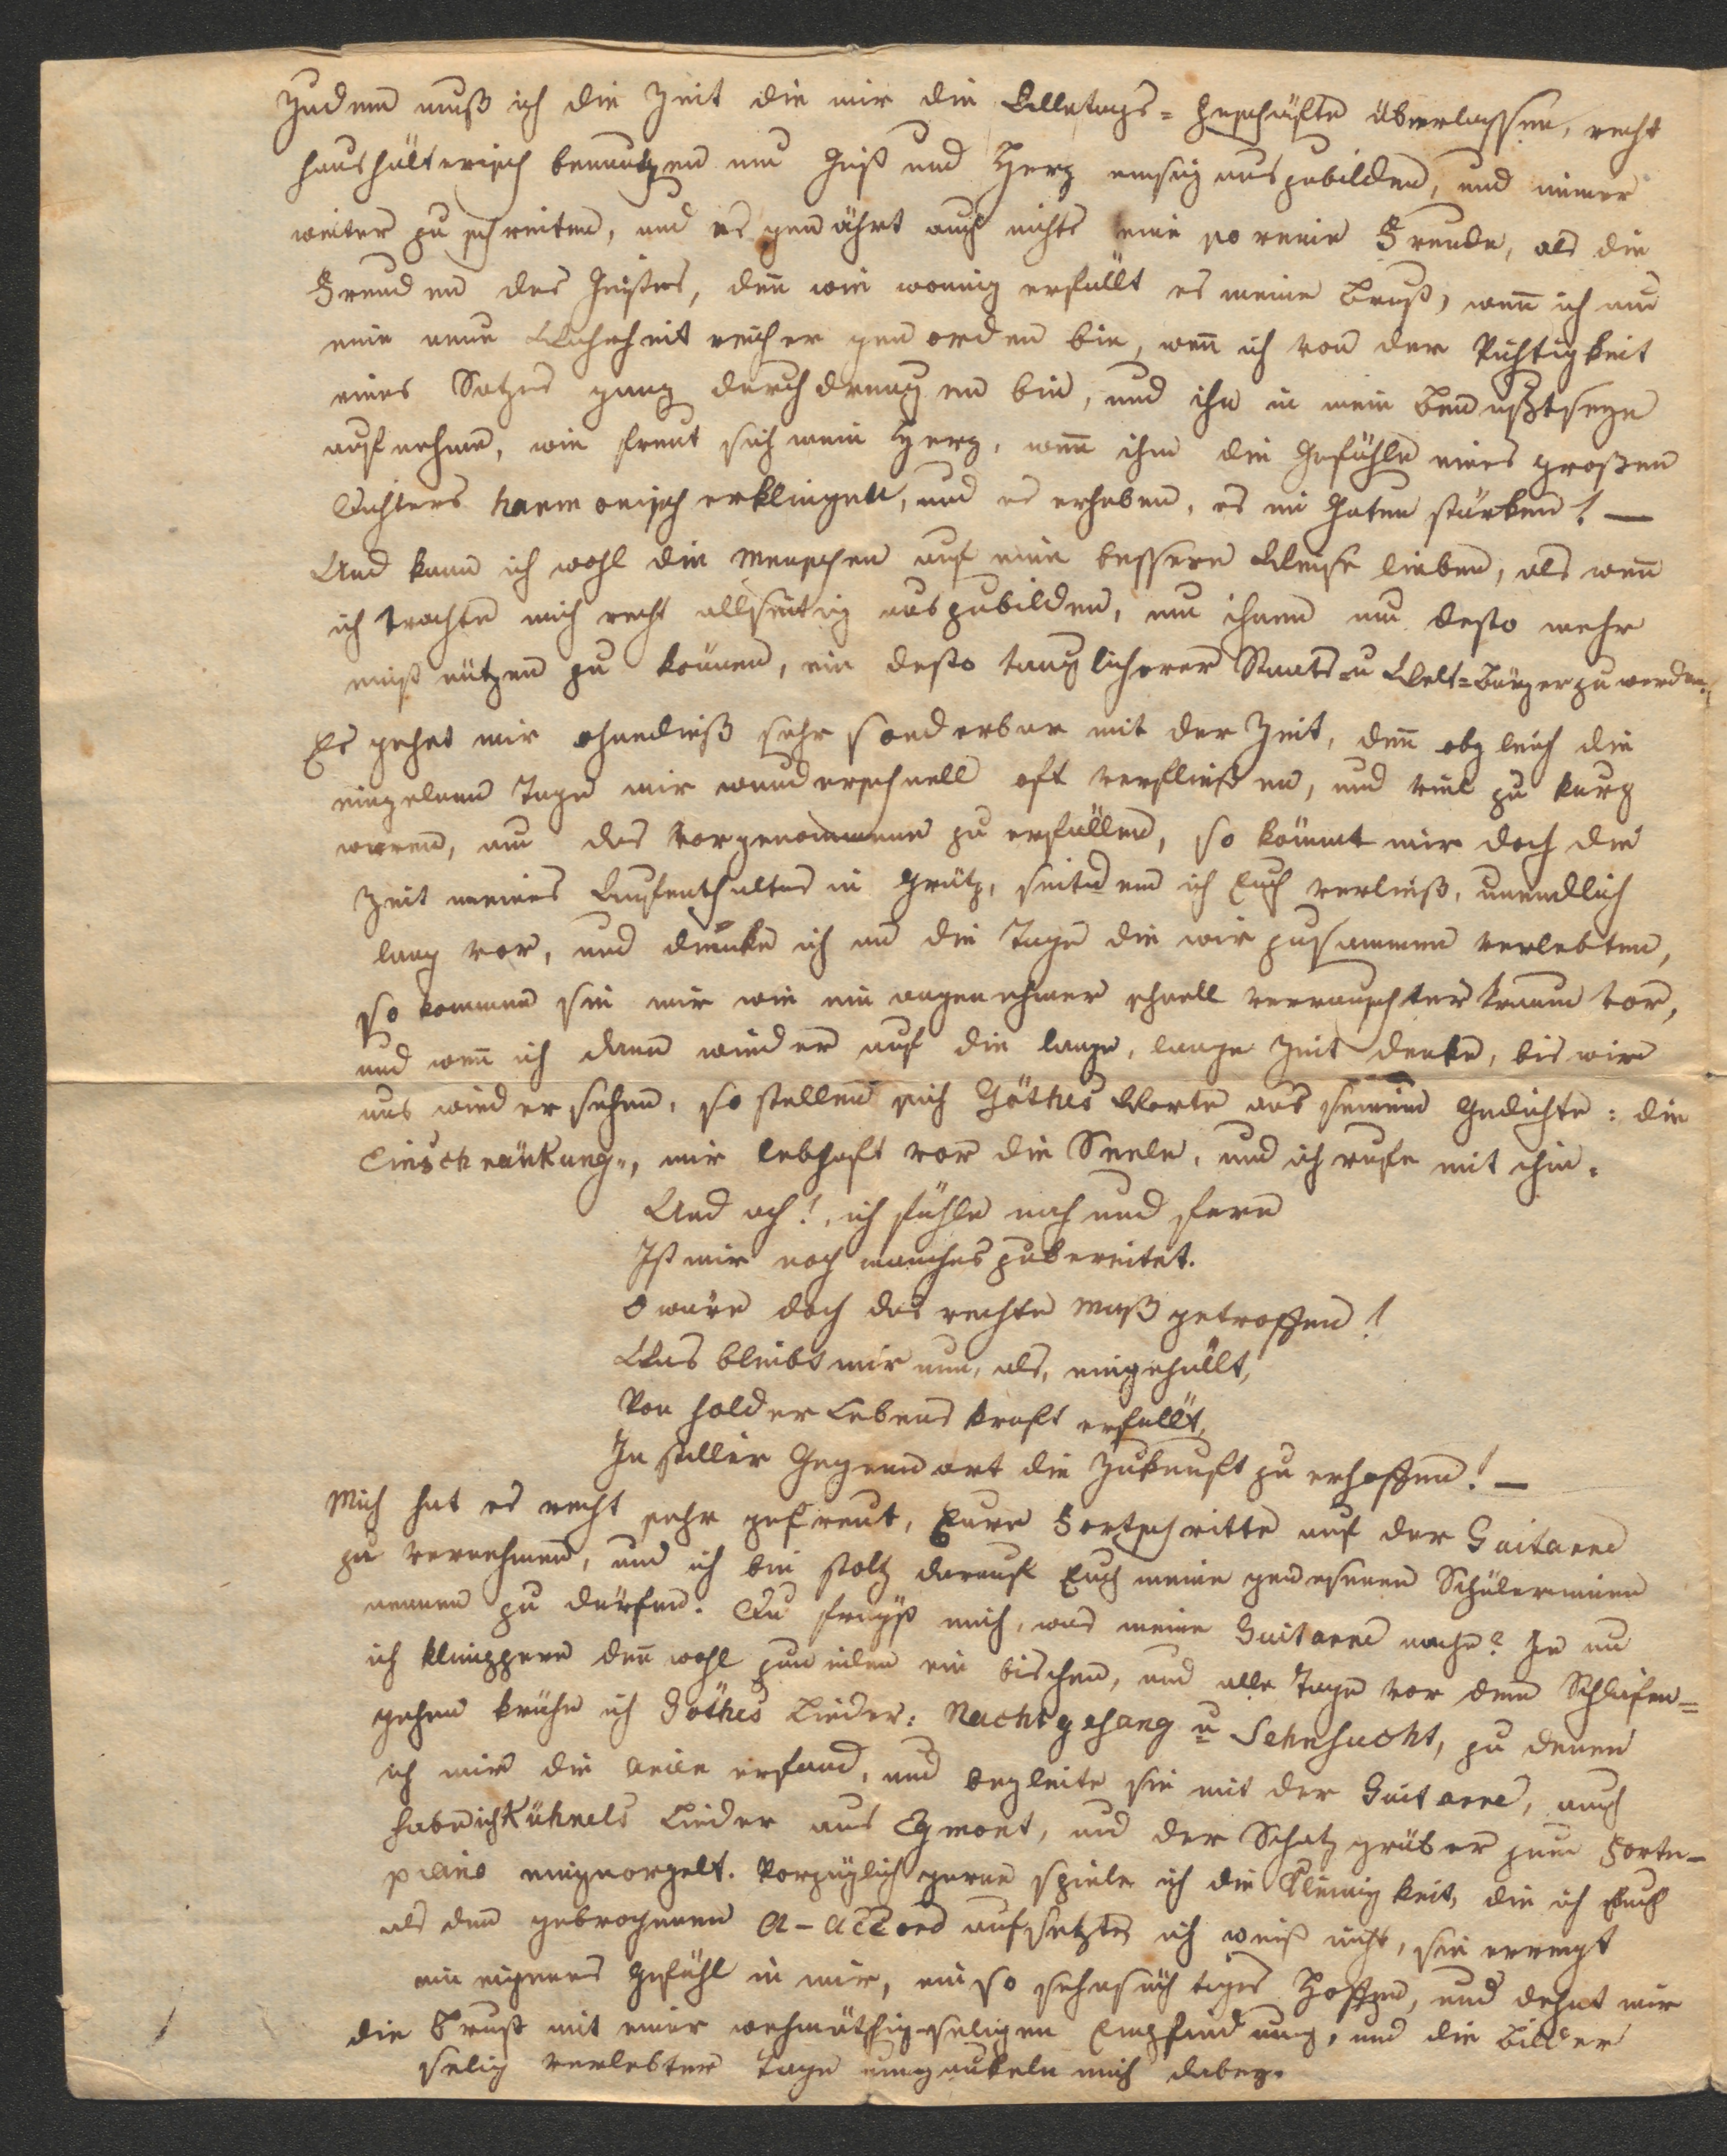 Zudem muß ich die Zeit die mir die Alletags-Geschäfte überlassen, recht
haushälterisch benutzen um Geist und Herz emsig auszubilden, und immer
weiter zu schreiten, und es gewährt auch nichts eine so reine Freude, als die
Freuden des Geistes, den̅ wie wonnig erfüllt es meine Brust, wen̅ ich um
eine neue Wahrheit reicher geworden bin, wen̅ ich von der Richtigkeit
eines Satzes ganz durchdrungen bin, und ihn in mein Bewußtseyn
aufnehme, wie freut sich mein Herz, wen̅ ihm die Gefühle eines großen
Dichters harmonisch erklingen, und es erheben, es im Guten stärken! —
Und kann ich wohl die Menschen auf eine bessere Weise lieben, als wen̅
ich trachte mich recht allseitig auszubilden, um ihnen um desto mehr
einst nützen zu können, ein desto tauglicherer Staats- u Welt-Bürger zu werden.
Es gehet mir ohnedieß sehr sonderbar mit der Zeit, den̅ obgleich die
einzelnen Tage mir wunderschnell oft verfließen, und viel zu kurz
waren, um das Vorgenommene zu erfüllen, so kömmt mir doch die
Zeit meines Aufenthaltes in Grätz, seitdem ich Euch verließ, unendlich
lang vor, und denke ich an die Tage die wir zusammen verlebten,
so kommen sie mir wie ein angenehmer schnell verrauschter Traum vor,
und wen̅ ich dann wieder auf die lange, lange Zeit denke, bis wir
uns wieder sehen, so stellen sich Göthes Worte aus seinem Gedichte: die
Einschränkung", mir lebhaft vor die Seele, und ich rufe mit ihm.
Und ach!, ich fühle nah und fern
Ist mir noch manches zubereitet.
O wäre doch das rechte Maß getroffen!
Was bleibt mir nun, als, eingehüllt,
Von holder Lebenskraft erfüllt,
In stiller Gegenwart die Zukunft zu erhoffen! —
Mich hat es recht sehr gefreut, Eure Fortschritte auf der Guitarre
zu vernehmen, und ich bin stolz darauf Euch meine gewesenen Schülerinnen
nennen zu dürfen. Du frägst mich, was meine Guitarre mache? Je nu
ich klimppere den̅ wohl zuweilen ein bischen, und alle Tage vor dem Schlafen-
gehen krähe ich Göthes Lieder: Nachtgesang u Sehnsucht, zu denen
ich mir die Arien erfand, und begleite sie mit der Guitarre, auch
habe ich Kühnels Lieder aus Egmont, und der Schatzgräber zum Forte-
piano eingeorgelt. Vorzüglich gerne spiele ich die Kleinigkeit, die ich Euch
als den gebrochenen A-Accord aufsetzte, ich weiß nicht, sie erregt
ein eigenes Gefühl in mir, ein so sehnsüchtiges Hoffen, und dehnt mir
die Brust mit einer wehmüthig-seligen Empfindung, und die Bilder
selig verlebter Tage umgaukeln mich dabey.